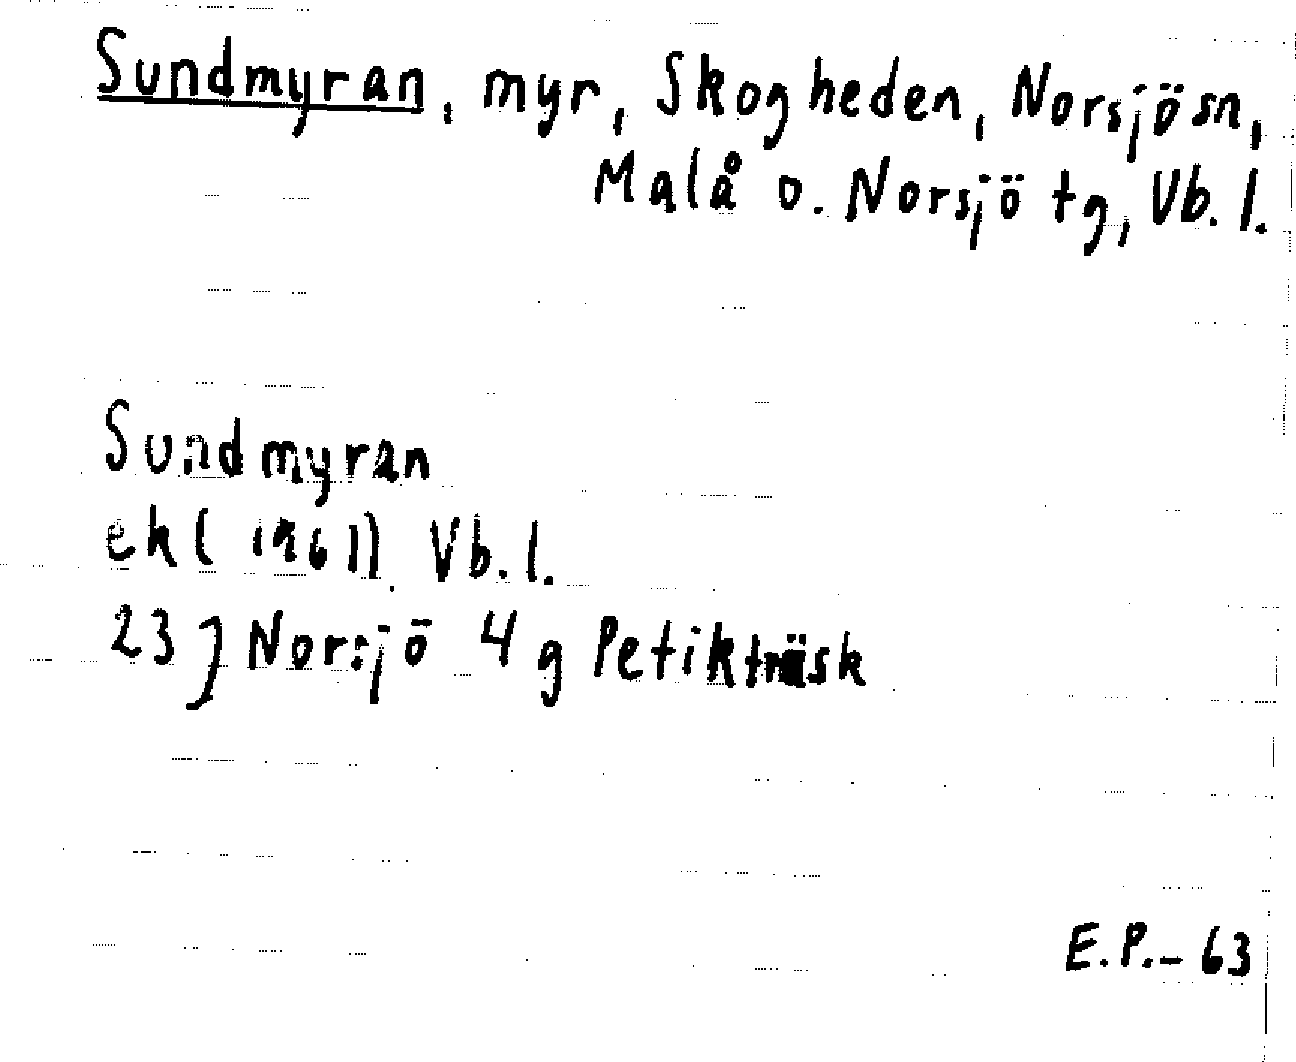 Sundmyran, myr, Skogheden, Norsjösn,
Malå o. Norsjö tg, Vb. l.
Sundmyran
ek (1961) Vb. l.
23 J Norsjö 4 g Petikträsk
E.P. - 63